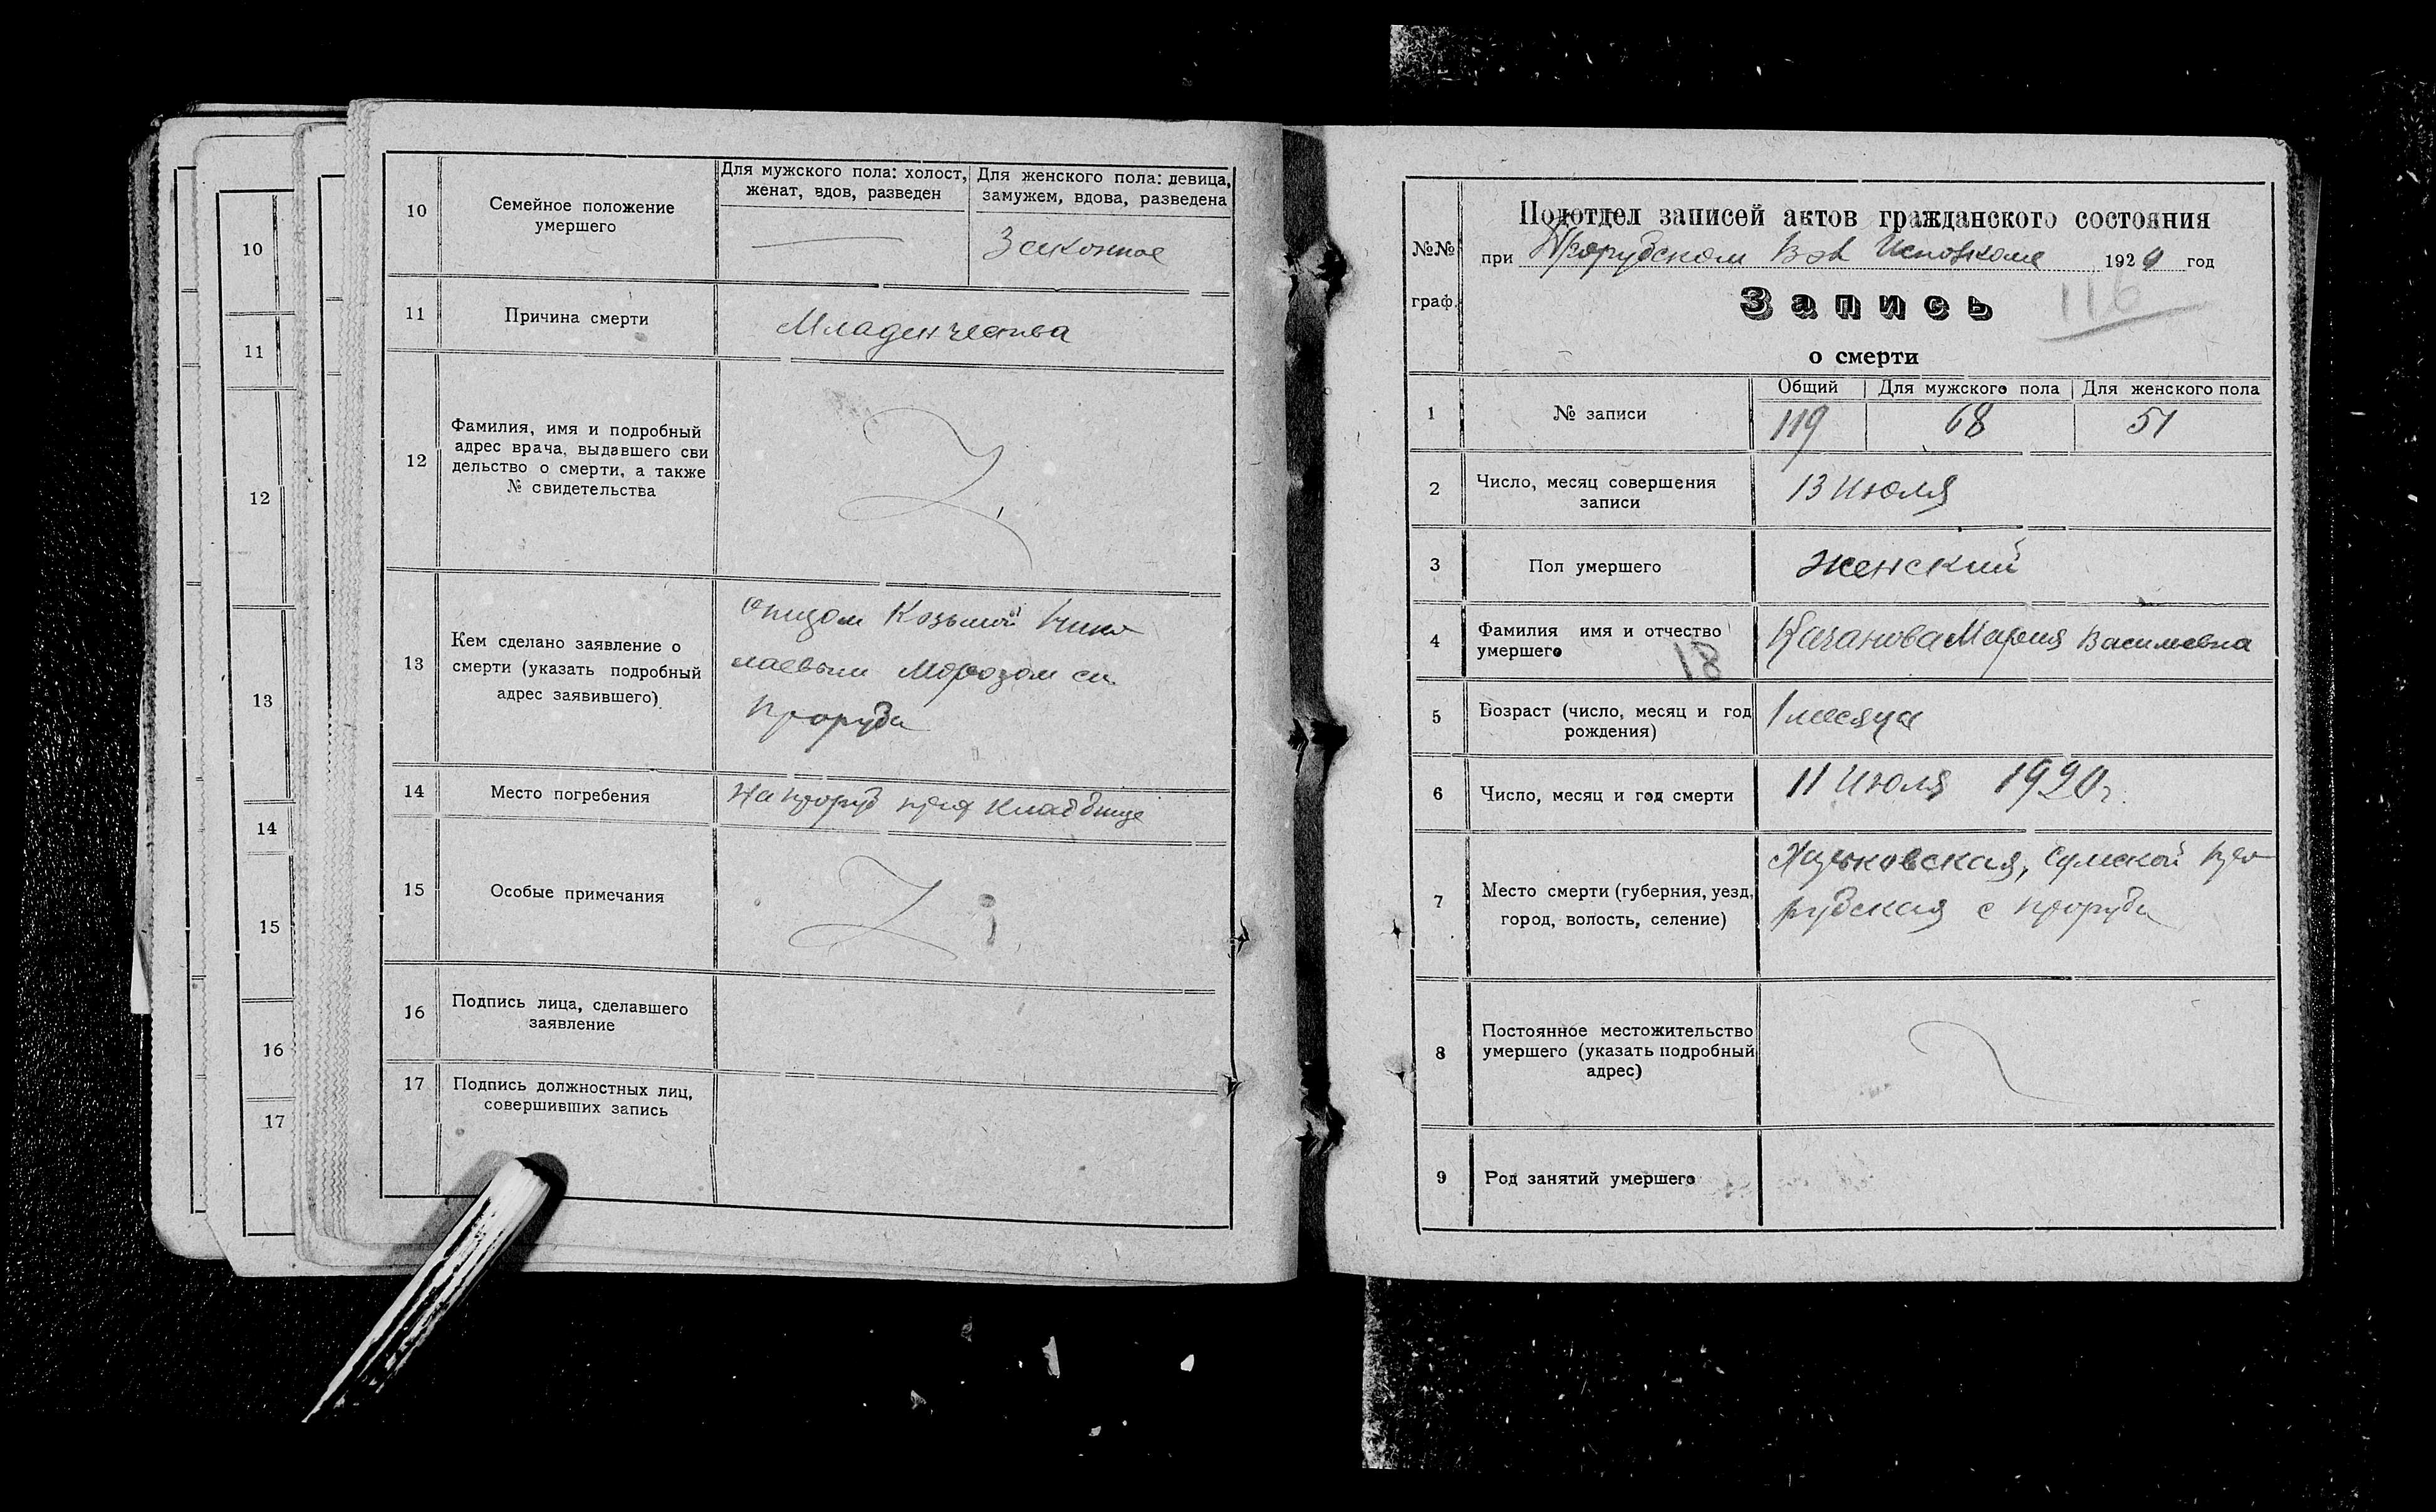 10
11
12
13
14
15
16
17
10
Семейное положение
умершего
Для мужского пола: холост,
женат, вдов, разведен
Для женского пола: девица,
замужем, вдова, разведена
Законное
11
Причина смерти
Младенчества
12
Фамилия, имя и подробный
адрес врача, выдавшего сви
дельство о смерти, а также
№ свидетельства
13
Кем сделано заявление о
смерти (указать подробный
адрес заявившего)
Козьмой Нико
лаевым Морозом
Проруби
14
Место погребения
На кладбище
15
Особые примечания
16
Подпись лица, сделавшего
заявление
17
Подпись должностных лиц,
совершивших запись
№№
граф.
Подотдел записей актов гражданского состояния
при Прорубском Вол Исполкоме 1920 год
Запись
116
о смерти
1
№ записи
Общий
Для мужского пола
Для женского пола
119
68
51
2
Число, месяц совершения
записи
13 Июля
3
Пол умершего
Женский
4
Фамилия имя и отчество
умершего
18
Качанова Мария Васильевна
5
Возраст (число, месяц и год
рождения)
1 месяца
6
Число, месяц и год смерти
11 Июля 1920 г.
7
Место смерти (губерния, уезд,
город, волость, селение)
Харьковская, Сумской Про
рубская с Проруби
8
Постоянное местожительство
умершего (указать подробный
адрес)
9
Род занятий умершего